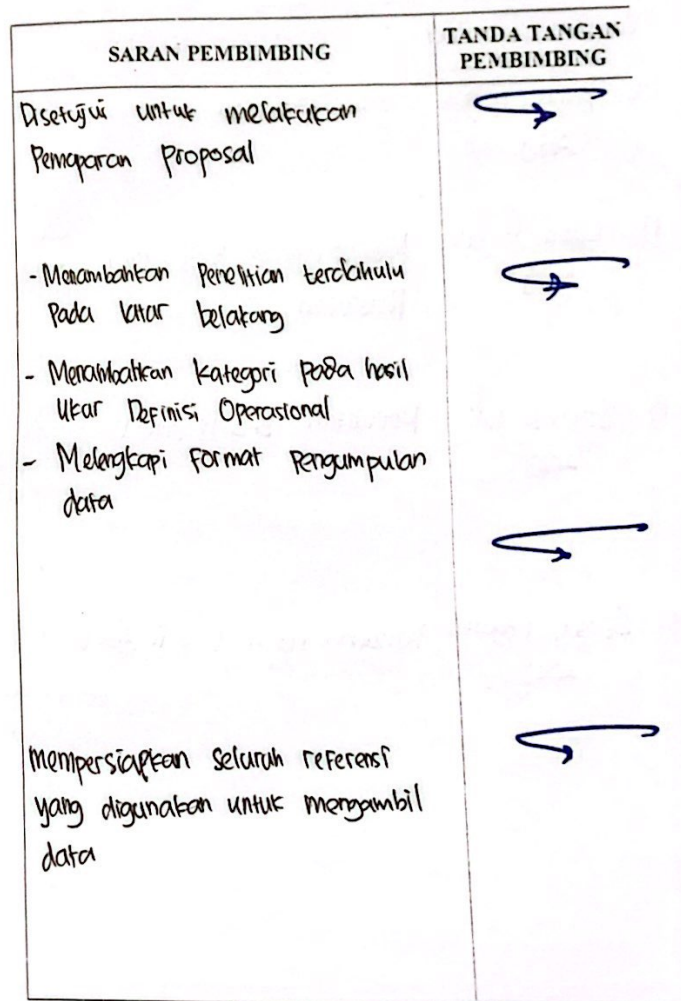 SARAN PEMBIMBING
TANDA TANGAN
PEMBIMBING
Disetujui untuk melakukan
Pemaparan Proposal
- Menambahkan Penelitian terdahulu
Pada latar belakang
- Menambahkan Kategori pada hasil
Ukur Definisi Operasional
- Melengkapi Format Pengumpulan
data
Mempersiapkan Seluruh referensi
yang digunakan untuk mengambil
data